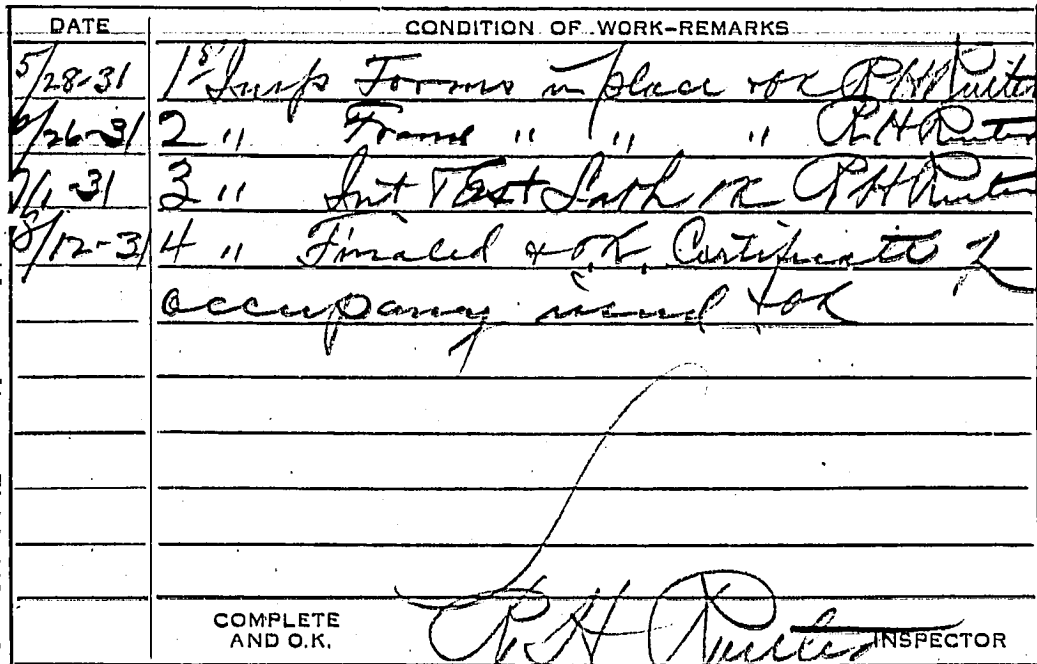 DATE CONDITION OF WORK-REMARKS
5/28-31 1st Insp Forms in place + ok R H Ruiter
6/26-31 2 " Frame " " " R H Ruiter
7/1-31 3 " Int Test Lath ok R H Ruiter
8/12-31 4 " Finaled + o.k. Certificate of
occupancy issued + ok
COMPLETE
AND O.K. R H Ruiter INSPECTOR